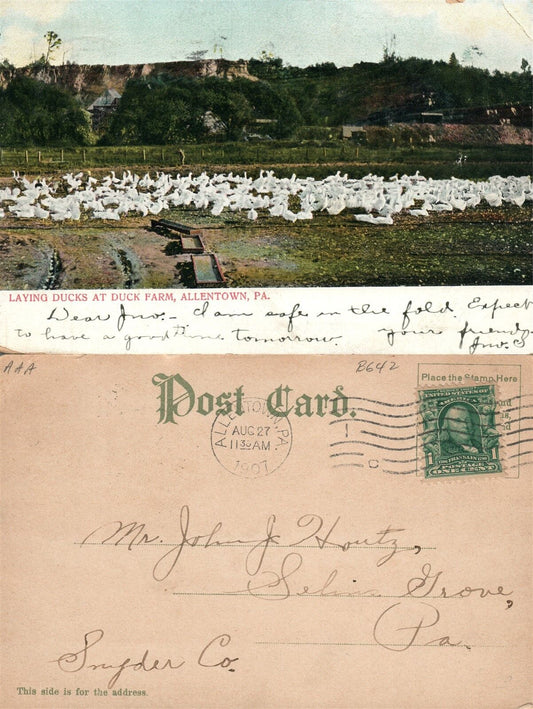 LAYING DUCKS AT DUCK FARM, ALLENTOWN, PA.
Dear Jno.- I am safe in the fold. Expect
to have a good time tomorrow. Your friend,
Jno. S
AAA
B642
Post Card.
Place the Stamp Here
ALLENTOWN, PA.
AUG 27
11 30 AM
1907
UNITED STATES OF AMERICA
1706 FRANKLIN 1790
1 POSTAGE 1
ONE CENT
Mr. John J Houtz,
Selins Grove,
Pa.
Snyder Co.
This side is for the address.